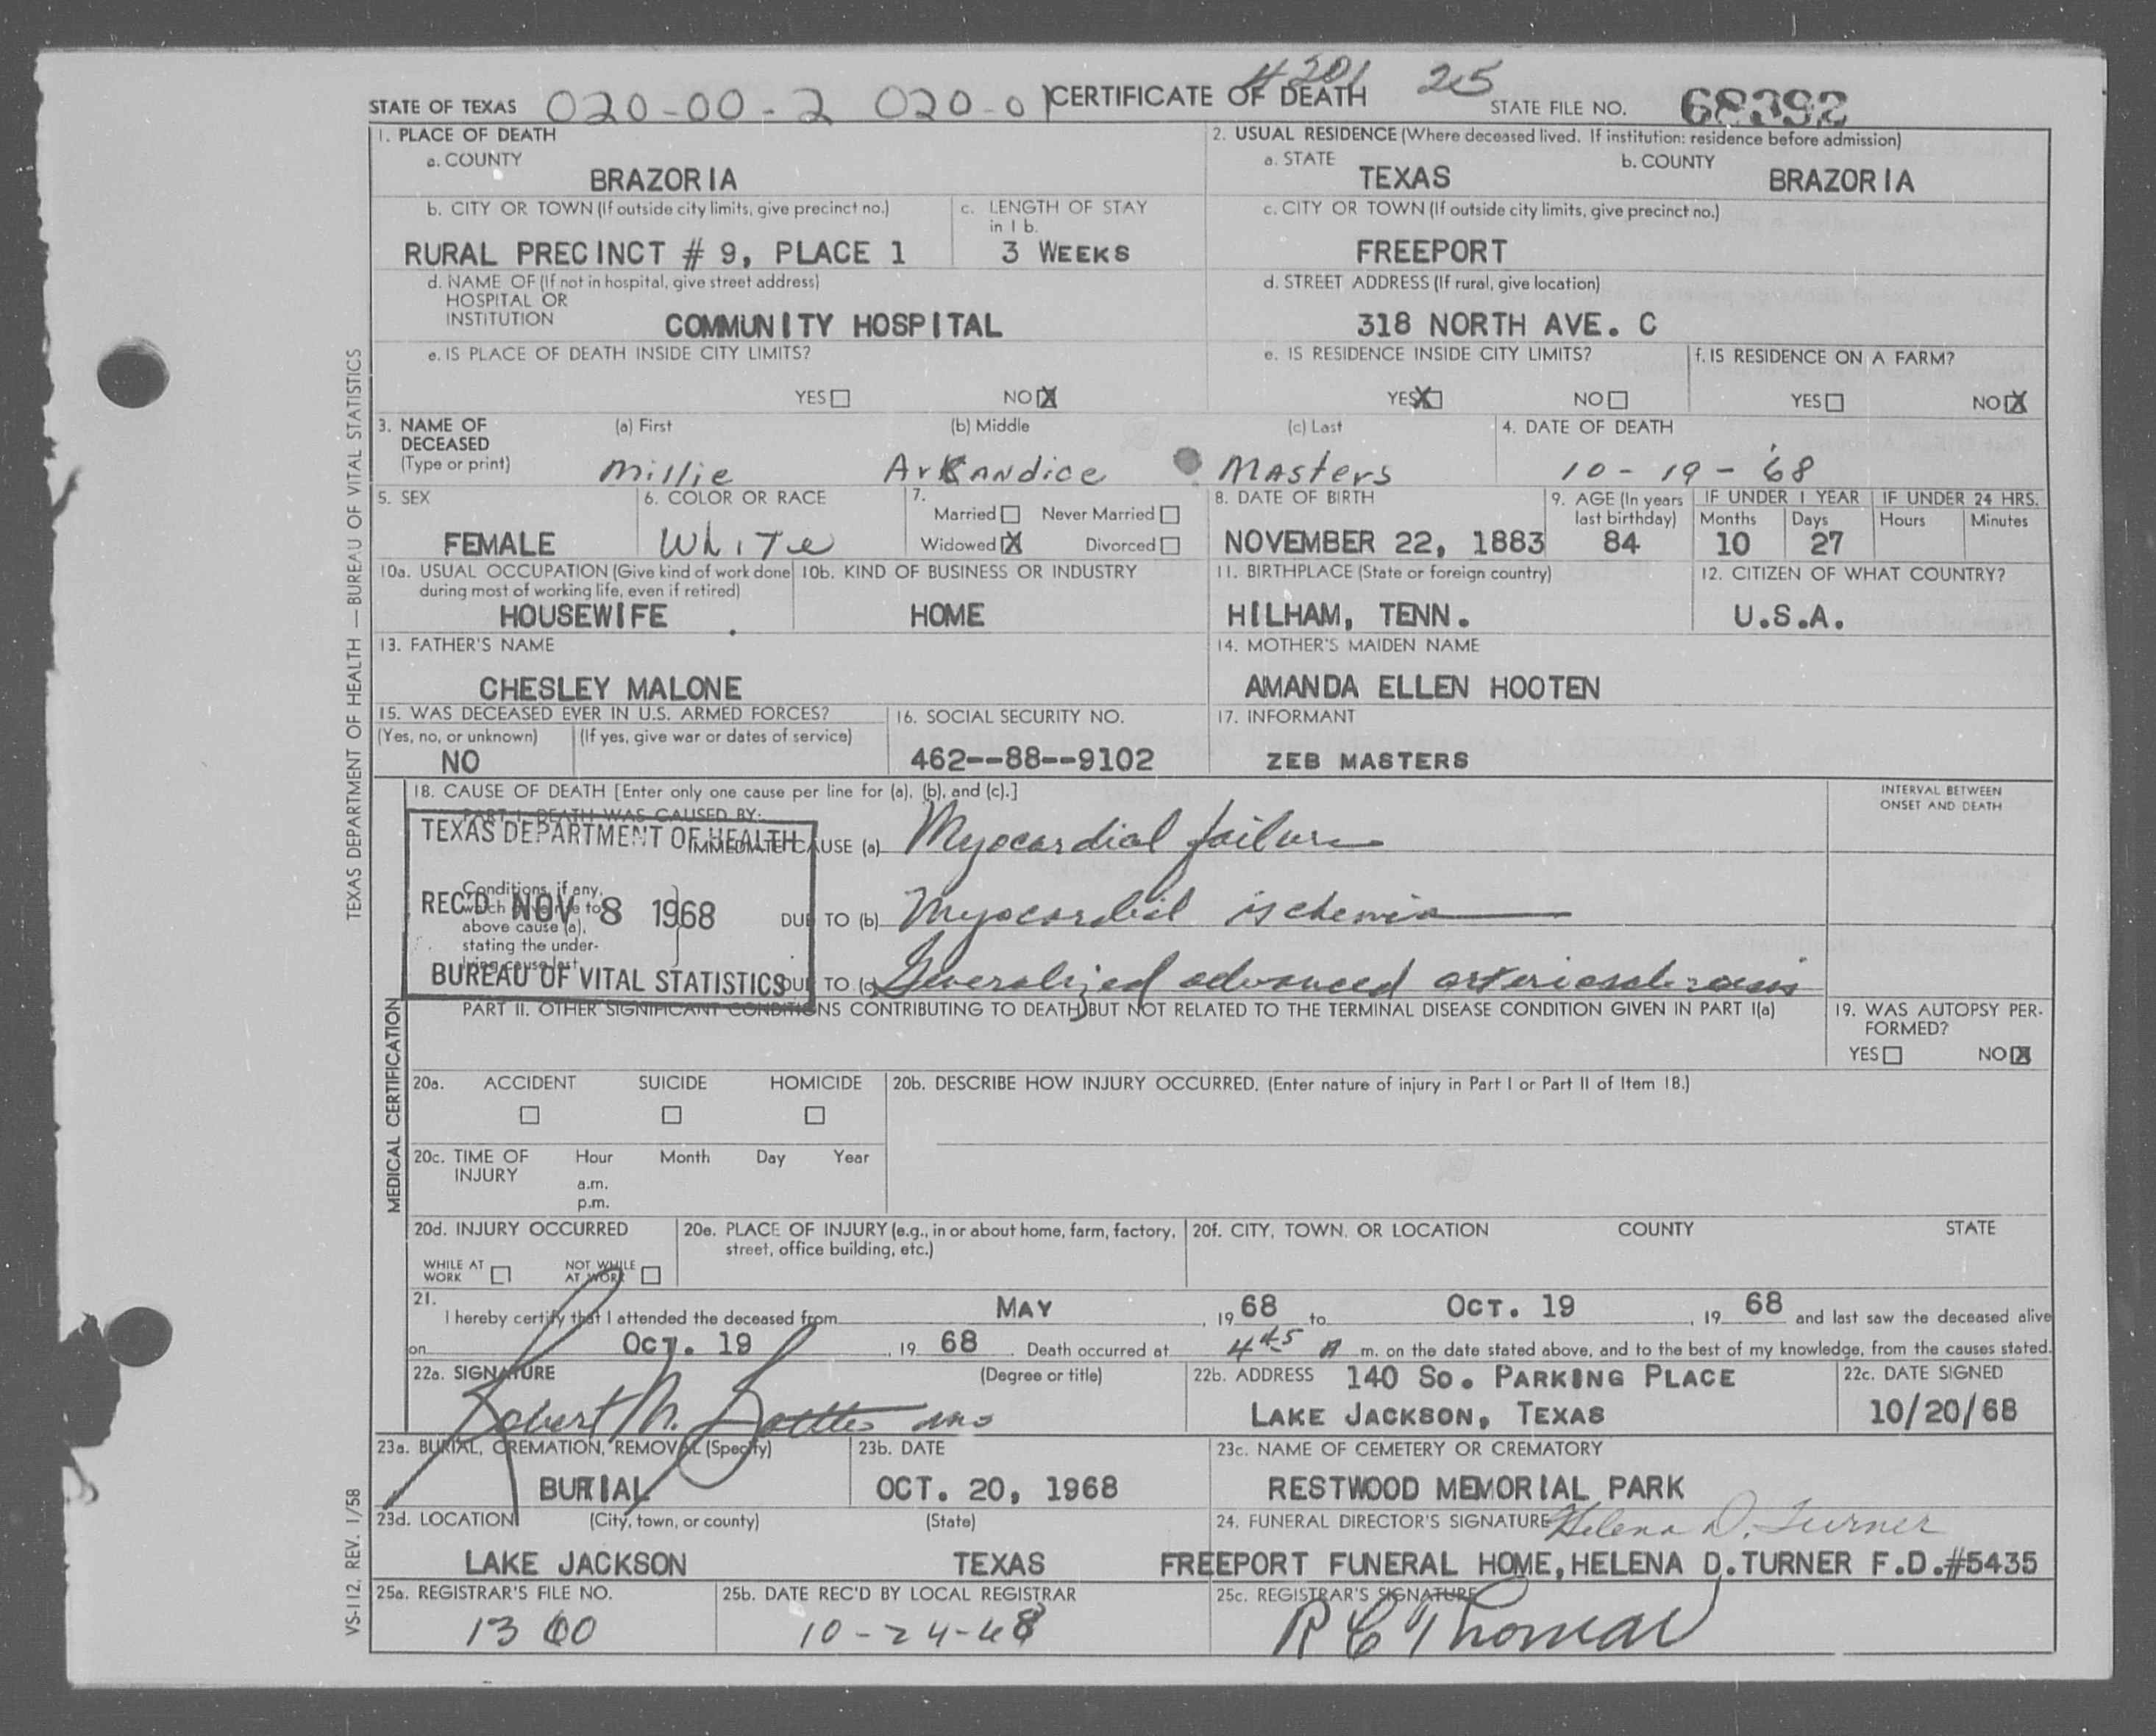 STATE OF TEXAS 020-00-2 020-0 CERTIFICATE OF DEATH #201 25 STATE FILE NO. 68392
1. PLACE OF DEATH
a. COUNTY
BRAZORIA
2. USUAL RESIDENCE (Where deceased lived. If institution: residence before admission)
a. STATE b. COUNTY
TEXAS BRAZORIA
b. CITY OR TOWN (If outside city limits, give precinct no.)
RURAL PRECINCT # 9, PLACE 1
c. LENGTH OF STAY
in 1 b.
3 WEEKS
c. CITY OR TOWN (If outside city limits, give precinct no.)
FREEPORT
d. NAME OF (If not in hospital, give street address)
HOSPITAL OR
INSTITUTION
COMMUNITY HOSPITAL
d. STREET ADDRESS (If rural, give location)
318 NORTH AVE. C
e. IS PLACE OF DEATH INSIDE CITY LIMITS?
YES☐ NO☒
e. IS RESIDENCE INSIDE CITY LIMITS?
YES☒ NO☐
f. IS RESIDENCE ON A FARM?
YES☐ NO☒
3. NAME OF
DECEASED
(Type or print)
(a) First (b) Middle (c) Last
Millie Arkandice Masters
4. DATE OF DEATH
10-19-'68
5. SEX
FEMALE
6. COLOR OR RACE
White
7.
Married☐ Never Married☐
Widowed☒ Divorced☐
8. DATE OF BIRTH
NOVEMBER 22, 1883
9. AGE (In years
last birthday)
84
IF UNDER 1 YEAR
Months Days
10 27
IF UNDER 24 HRS.
Hours Minutes
10a. USUAL OCCUPATION (Give kind of work done
during most of working life, even if retired)
HOUSEWIFE
10b. KIND OF BUSINESS OR INDUSTRY
HOME
11. BIRTHPLACE (State or foreign country)
HILHAM, TENN.
12. CITIZEN OF WHAT COUNTRY?
U.S.A.
13. FATHER'S NAME
CHESLEY MALONE
14. MOTHER'S MAIDEN NAME
AMANDA ELLEN HOOTEN
15. WAS DECEASED EVER IN U.S. ARMED FORCES?
(Yes, no, or unknown) (If yes, give war or dates of service)
NO
16. SOCIAL SECURITY NO.
462--88--9102
17. INFORMANT
ZEB MASTERS
18. CAUSE OF DEATH [Enter only one cause per line for (a), (b), and (c).]
INTERVAL BETWEEN
ONSET AND DEATH
PART I. DEATH WAS CAUSED BY:
IMMEDIATE CAUSE (a) Myocardial failure
Conditions, if any,
which gave rise to
above cause (a),
stating the under-
lying cause last.
DUE TO (b) Myocardial ischemia
DUE TO (c) Generalized advanced arteriosclerosis
TEXAS DEPARTMENT OF HEALTH
REC'D NOV 8 1968
BUREAU OF VITAL STATISTICS
PART II. OTHER SIGNIFICANT CONDITIONS CONTRIBUTING TO DEATH BUT NOT RELATED TO THE TERMINAL DISEASE CONDITION GIVEN IN PART I(a)
19. WAS AUTOPSY PER-
FORMED?
YES☐ NO☒
20a. ACCIDENT SUICIDE HOMICIDE
☐ ☐ ☐
20b. DESCRIBE HOW INJURY OCCURRED. (Enter nature of injury in Part I or Part II of Item 18.)
20c. TIME OF
INJURY
Hour Month Day Year
a.m.
p.m.
20d. INJURY OCCURRED
WHILE AT
WORK ☐
NOT WHILE
AT WORK ☐
20e. PLACE OF INJURY (e.g., in or about home, farm, factory,
street, office building, etc.)
20f. CITY, TOWN, OR LOCATION COUNTY STATE
21.
I hereby certify that I attended the deceased from MAY, 19 68 to OCT. 19, 19 68 and last saw the deceased alive
on OCT. 19, 19 68. Death occurred at 4 45 A m. on the date stated above, and to the best of my knowledge, from the causes stated.
22a. SIGNATURE (Degree or title)
Robert M.
22b. ADDRESS 140 SO. PARKING PLACE
LAKE JACKSON, TEXAS
22c. DATE SIGNED
10/20/68
23a. BURIAL, CREMATION, REMOVAL (Specify)
BURIAL
23b. DATE
OCT. 20, 1968
23c. NAME OF CEMETERY OR CREMATORY
RESTWOOD MEMORIAL PARK
23d. LOCATION (City, town, or county) (State)
LAKE JACKSON TEXAS
24. FUNERAL DIRECTOR'S SIGNATURE Helena D. Turner
FREEPORT FUNERAL HOME, HELENA D. TURNER F.D.#5435
25a. REGISTRAR'S FILE NO.
1360
25b. DATE REC'D BY LOCAL REGISTRAR
10-24-68
25c. REGISTRAR'S SIGNATURE
R C Thomas
TEXAS DEPARTMENT OF HEALTH — BUREAU OF VITAL STATISTICS
MEDICAL CERTIFICATION
VS-112, REV. 1/58